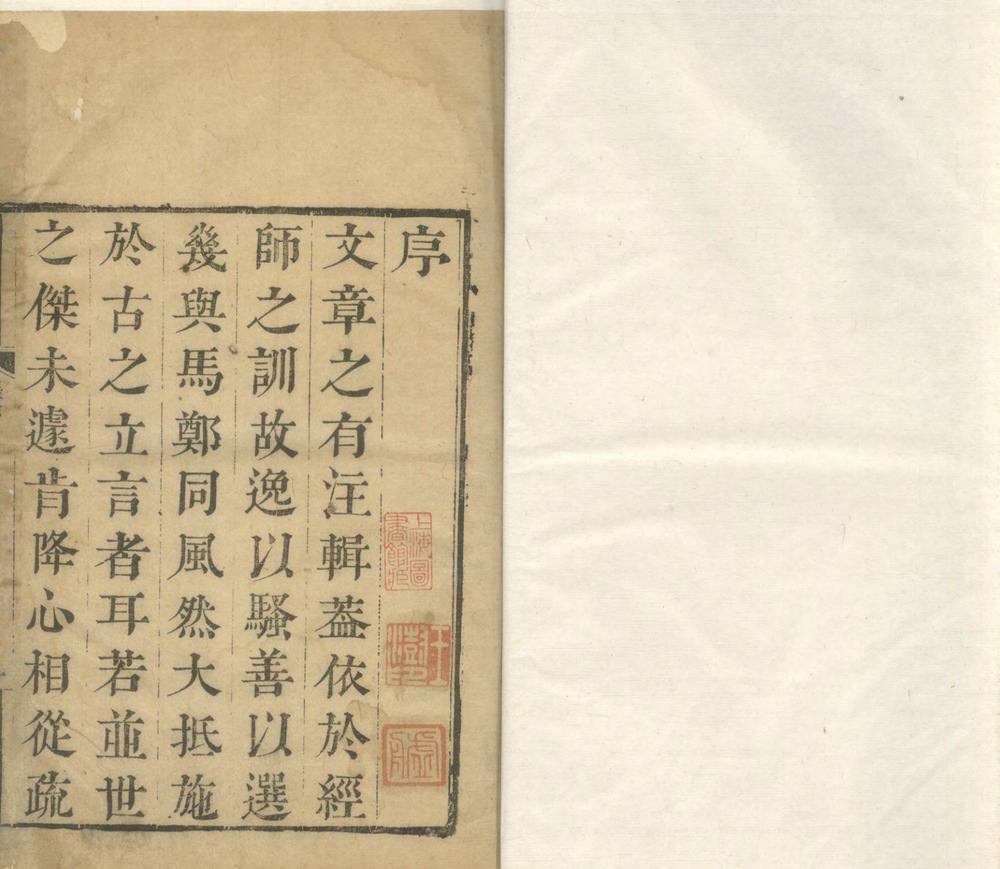 序
文章之有注輯葢依於經
師之訓故逸以騷善以選
幾與馬鄭同風然大抵施
於古之立言者耳若並世
之傑未遽肯降心相從疏
上海圖
書館藏